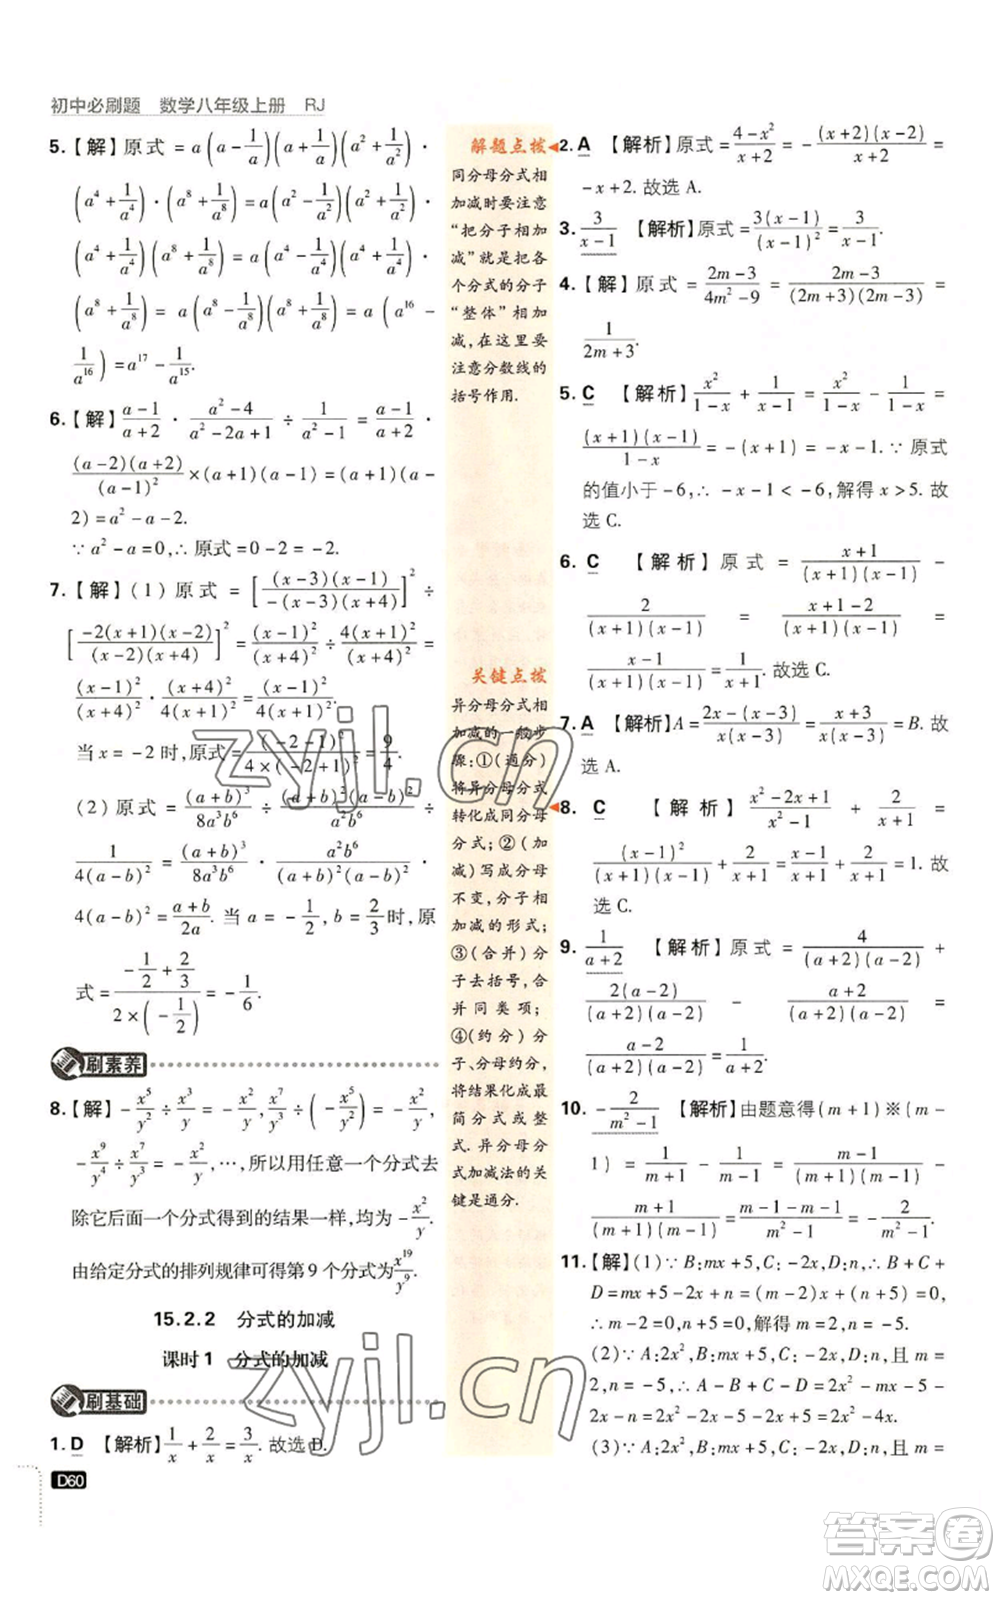 初中必刷题 数学八年级上册 RJ
5.【解】原式=a(a-1/a)(a+1/a)(a²+1/a²)·
(a⁴+1/a⁴)·(a⁸+1/a⁸)=a(a²-1/a²)(a²+1/a²)·
(a⁴+1/a⁴)(a⁸+1/a⁸)=a(a⁴-1/a⁴)(a⁴+1/a⁴)·
(a⁸+1/a⁸)=a(a⁸-1/a⁸)(a⁸+1/a⁸)=a(a¹⁶-
1/a¹⁶)=a¹⁷-1/a¹⁵.
6.【解】(a-1)/(a+2)·(a²-4)/(a²-2a+1)÷1/(a²-1)=(a-1)/(a+2)·
(a-2)(a+2)/(a-1)²×(a+1)(a-1)=(a+1)(a-
2)=a²-a-2.
∵a²-a=0,∴原式=0-2=-2.
7.【解】(1)原式=[(x-3)(x-1)/-(x-3)(x+4)]²÷
[-2(x+1)(x-2)/(x-2)(x+4)]²=(x-1)²/(x+4)²÷4(x+1)²/(x+4)²=
(x-1)²/(x+4)²·(x+4)²/4(x+1)²=(x-1)²/4(x+1)².
当x=-2时,原式=(-2-1)²/4×(-2+1)²=9/4.
(2)原式=(a+b)³/8a³b⁶÷(a+b)²/a²b⁶÷
1/4(a-b)²=(a+b)³/8a³b⁶·a²b⁶/(a+b)²(a-b)²·
4(a-b)²=(a+b)/2a.当a=-1/2,b=2/3时,原
式=(-1/2+2/3)/(2×(-1/2))=-1/6.
刷素养
8.【解】-x⁵/y²÷x³/y=-x²/y,x⁷/y³÷(-x⁵/y²)=-x²/y,
-x⁹/y⁴÷x⁷/y³=-x²/y,…,所以用任意一个分式去
除它后面一个分式得到的结果一样,均为-x²/y.
由给定分式的排列规律可得第9个分式为x¹⁹/y⁹.
15.2.2 分式的加减
课时1 分式的加减
刷基础
1.D 【解析】1/x+2/x=3/x.故选D.
D60
解题点拨
同分母分式相
加减时要注意
“把分子相加
减”就是把各
个分式的分子
“整体”相加
减,在这里要
注意分数线的
括号作用.
关键点拨
异分母分式相
加减的一般步
骤:①(通分)
将异分母分式
转化成同分母
分式;②(加
减)写成分母
不变,分子相
加减的形式;
③(合并)分
子去括号,合
并同类项;
④(约分)分
子、分母约分,
将结果化成最
简分式或整
式.异分母分
式加减法的关
键是通分.
2.A 【解析】原式=(4-x²)/(x+2)=-(x+2)(x-2)/(x+2)=
-x+2.故选A.
3.3/(x-1) 【解析】原式=3(x-1)/(x-1)²=3/(x-1).
4.【解】原式=(2m-3)/(4m²-9)=(2m-3)/(2m+3)(2m-3)=
1/(2m+3).
5.C 【解析】x²/(1-x)+1/(x-1)=x²/(1-x)-1/(1-x)=
(x+1)(x-1)/(1-x)=-(x+1)=-x-1.∵原式
的值小于-6,∴-x-1<-6,解得x>5.故
选C.
6.C 【解析】原式=(x+1)/(x+1)(x-1)-
2/(x+1)(x-1)=(x+1-2)/(x+1)(x-1)=
(x-1)/(x+1)(x-1)=1/(x+1).故选C.
7.A 【解析】A=(2x-(x-3))/x(x-3)=(x+3)/x(x-3)=B.故
选A.
8.C 【解析】(x²-2x+1)/(x²-1)+2/(x+1)=
(x-1)²/(x+1)(x-1)+2/(x+1)=(x-1)/(x+1)+2/(x+1)=1.故
选C.
9.1/(a+2) 【解析】原式=4/(a+2)(a-2)+
2(a-2)/(a+2)(a-2)-(a+2)/(a+2)(a-2)=
(a-2)/(a+2)(a-2)=1/(a+2).
10.-2/(m²-1) 【解析】由题意得(m+1)※(m-
1)=1/(m+1)-1/(m-1)=(m-1)/(m+1)(m-1)-
(m+1)/(m+1)(m-1)=(m-1-m-1)/(m²-1)=-2/(m²-1).
11.【解】(1)∵B:mx+5,C:-2x+n,B+C=
D=mx+5-2x+n=(m-2)x+(5+n)=0,
∴m-2=0,5+n=0,解得m=2,n=-5.
(2)∵A:2x²,B:mx+5,C:-2x+n,且m=
2,n=-5,∴A+B+C=2x²+2x+5-2x-5=
2x².∵A+B+C+E=-4x,∴E=-2x²-4x.
(3)∵A:2x²,B:mx+5,C:-2x+n,且m=
zyjl.cn
zyjl.cn
答案圈
MXQE.COM